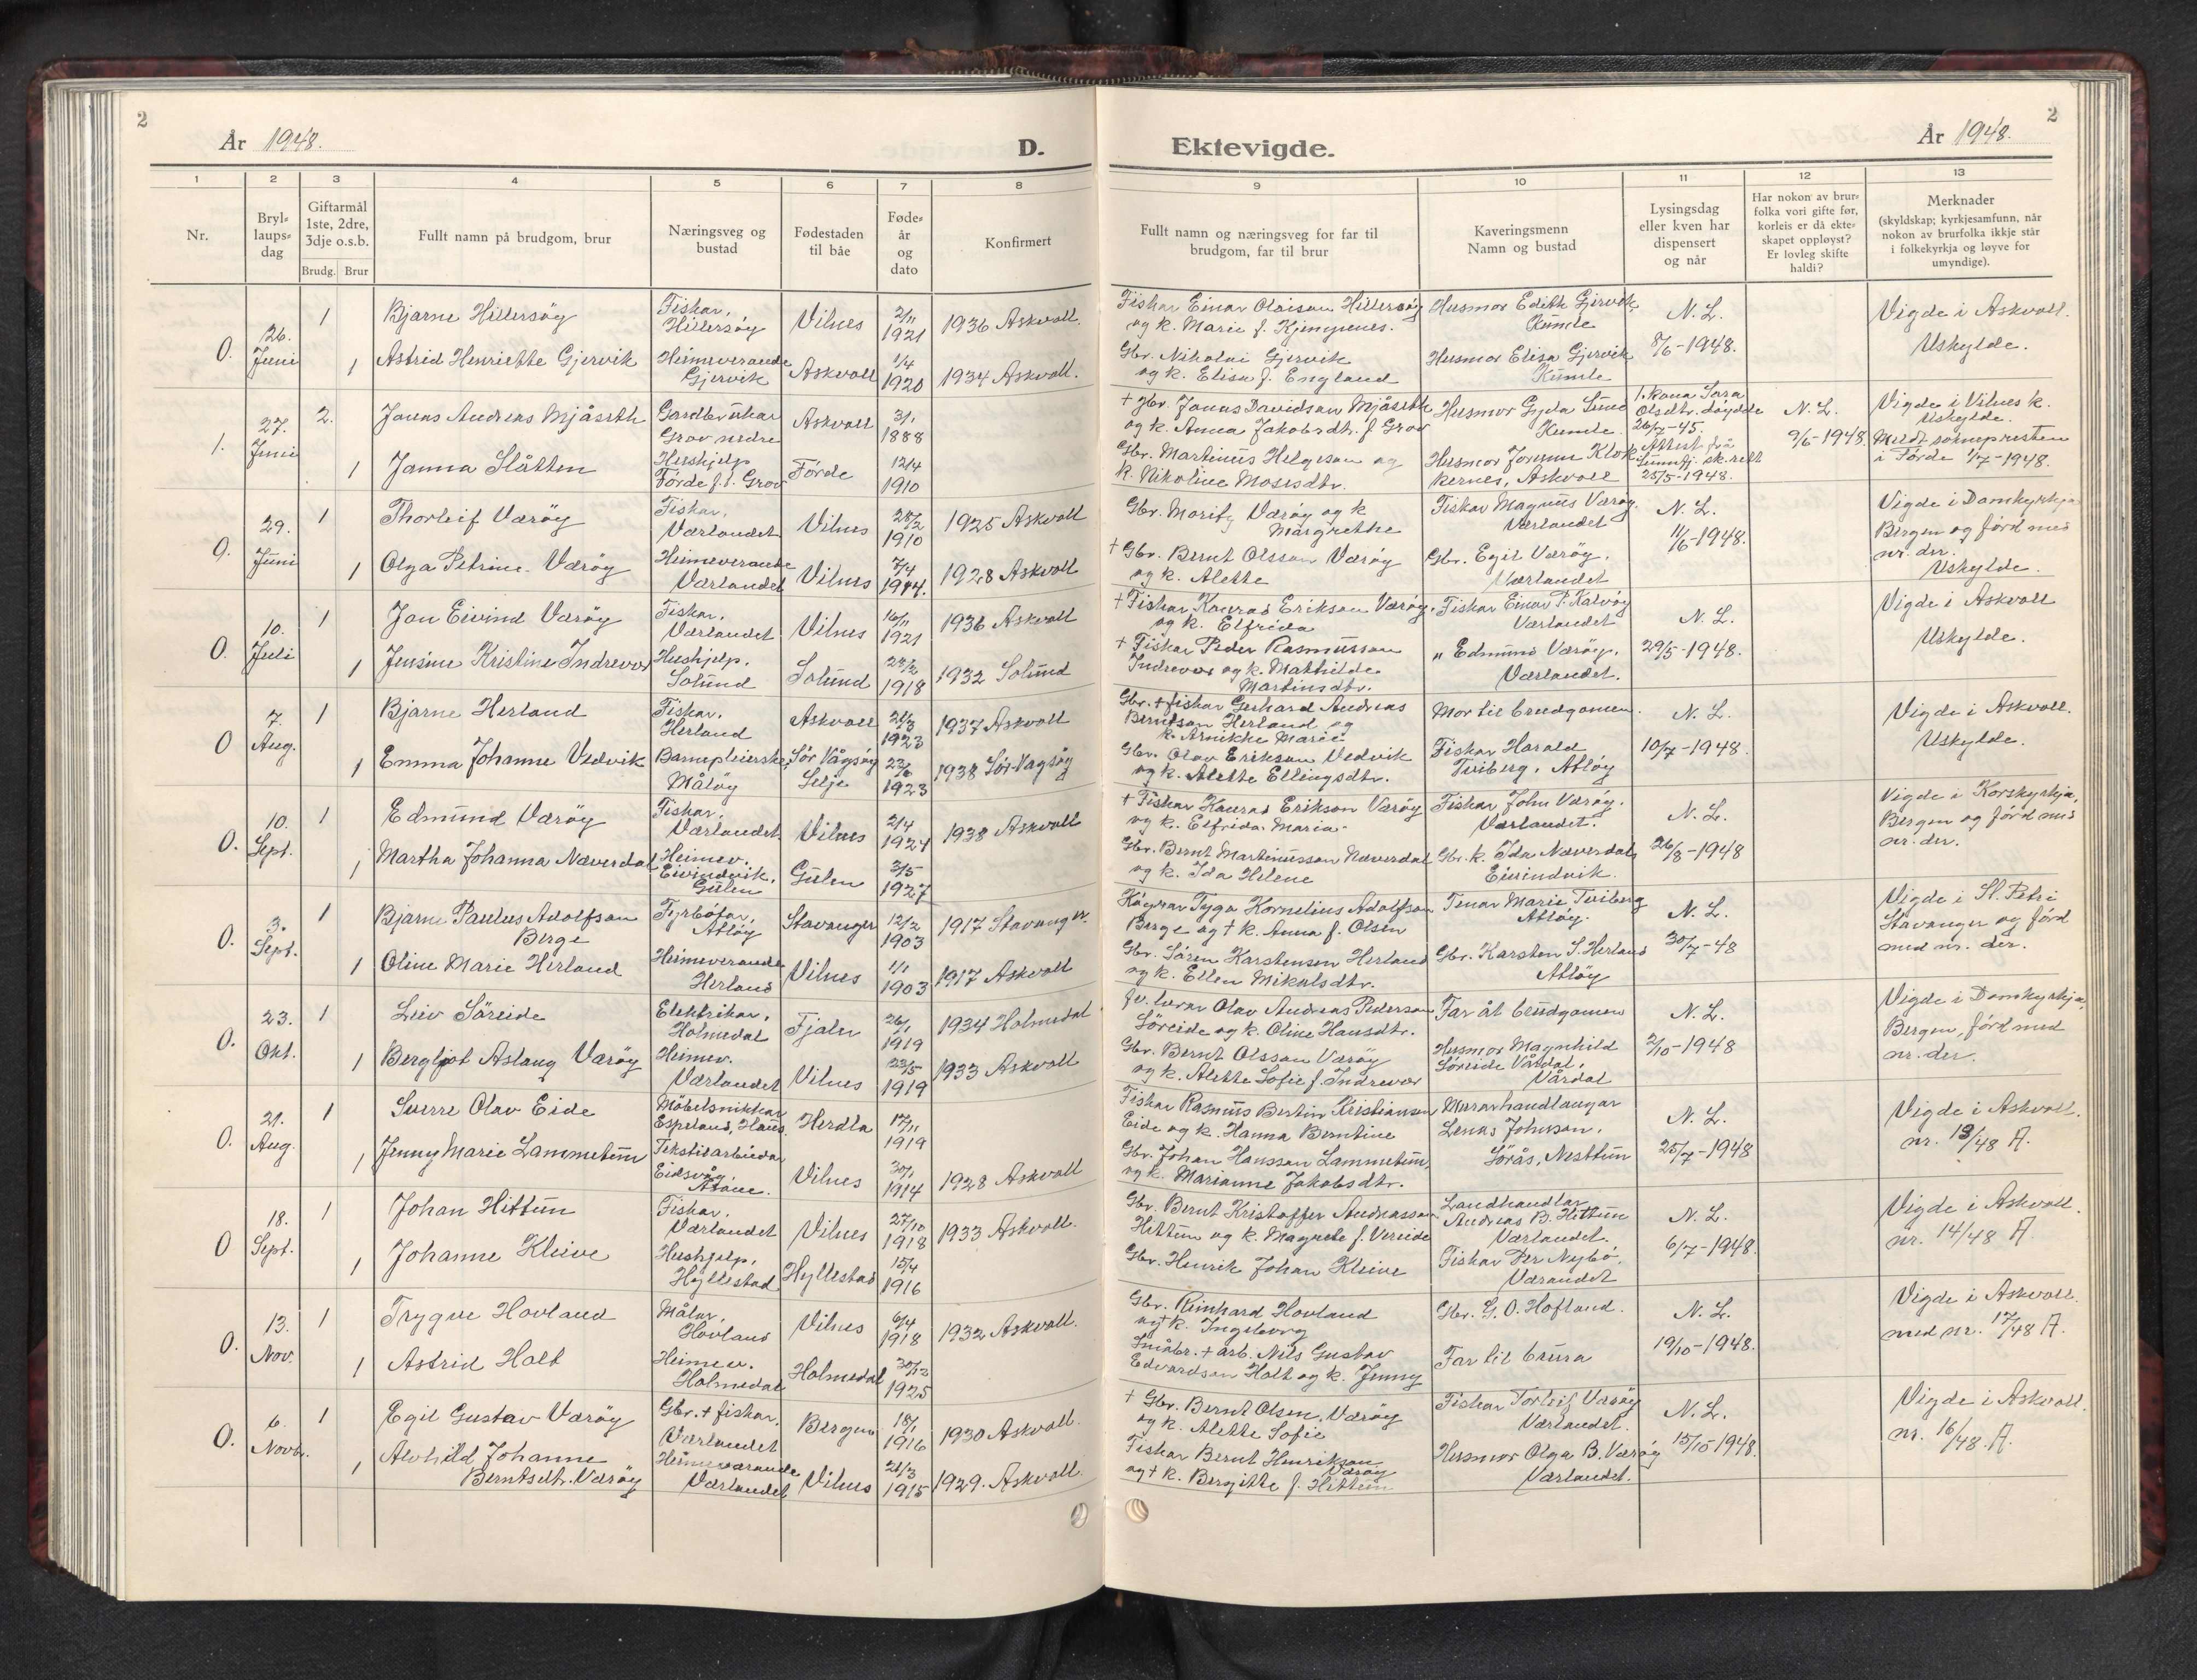 2
År 1948.
D.
1 2 3 4 5 6 7 8
Nr.
Bryl-
laups-
dag
Giftarmål
1ste, 2dre,
3dje o.s.b.
Brudg. Brur
Fullt namn på brudgom, brur
Næringsveg og
bustad
Fødestaden
til båe
Føde-
år
og
dato
Konfirmert
O. 26. Juni
1 Bjarne Hillersöy Fiskar, Hillersöy Vilnes 2/11 1921 1936 Askvoll.
1 Astrid Henriette Gjervik Heimeverande Gjervik Askvoll 1/4 1920 1934 Askvoll.
1. 27. Juni
2. Jonas Andreas Mjåseth Gardbrukar Grov nedre Askvoll 3/1 1888
1 Janna Slåtten Hushjelp Förde f.t. Grov Förde 12/4 1910
O. 29. Juni
1 Thorleif Værøy Fiskar, Værlandet Vilnes 28/2 1910 1925 Askvoll
1 Olga Petrine Værøy Heimeverande Værlandet Vilnes 7/4 1914. 1928 Askvoll
O. 10. Juli
1 Jon Eivind Værøy Fiskar, Værlandet Vilnes 16/11 1921 1936 Askvoll
1 Jensine Kristine Indrevær Hushjelp, Solund Solund 28/2 1918 1932 Solund
O 7. Aug.
1 Bjarne Herland Fiskar, Herland Askvoll 21/3 1923 1937 Askvoll
1 Emma Johanne Vedvik Barnepleierske, Måløy Sør Vågsøy Selje 23/6 1923 1938 Sør-Vagsøy
O. 10. Sept.
1 Edmund Værøy Fiskar, Værlandet Vilnes 2/4 1924 1938 Askvoll
1 Martha Johanna Næverdal Heimev. Eivindvik, Gulen Gulen 3/5 1927
O. 3. Sept.
1 Bjarne Paulus Adolfson Berge Fyrbøtar, Atløy Stavanger 12/2 1903 1917 Stavanger.
1 Oline Marie Herland Heimeverande Herland Vilnes 1/1 1903 1917 Askvoll
O. 23. Okt.
1 Leiv Söreide Elektrikar, Holmedal Fjaler 26/1 1919 1934 Holmedal
1 Bergljot Aslaug Værøy Heimev. Værlandet Vilnes 22/5 1919 1933 Askvoll
O. 21. Aug.
1 Sverre Olav Eide Möbelsnikkar Espeland, Haus. Herdla 17/11 1919
1 Jenny Marie Lammetun Tekstilarbeidar Eidsvåg, Åsane. Vilnes 30/1 1914 1928 Askvoll
O 18. Sept.
1 Johan Hittun Fiskar, Værlandet Vilnes 27/10 1918 1933 Askvoll.
1 Johanne Kleive Hushjelp, Hyllestad Hyllestad 15/4 1916
O. 13. Nov.
1 Trygve Hovland Målar, Hovland Vilnes 6/4 1918 1932 Askvoll.
1 Astrid Holt Heimev. Holmedal Holmedal 30/12 1925
O. 6. Novbr.
1 Egil Gustav Værøy Gbr. + fiskar, Værlandet Bergen 18/1 1916 1930 Askvoll.
1 Alvhild Johanne Berntsdtr. Værøy Heimeverande Værlandet Vilnes 21/3 1915 1929. Askvoll.
Ektevigde.
År 1948.
2
9 10 11 12 13
Fullt namn og næringsveg for far til
brudgom, far til brur
Kaveringsmenn
Namn og bustad
Lysingsdag
eller kven har
dispensert
og når
Har nokon av brur-
folka vori gifte før,
korleis er då ekte-
skapet oppløyst?
Er lovleg skifte
haldi?
Merknader
(skyldskap; kyrkjesamfunn, når
nokon av brurfolka ikkje står
i folkekyrkja og løyve for
umyndige).
Fiskar Einar Olaison Hillersøy og k. Marie f. Kjempenes. Husmor Edith Gjervik, Kumle N. L. Vigde i Askvoll.
Gbr. Nikolai Gjervik og k. Elisa f. England Husmor Elisa Gjervik Kumle 8/6-1948. Uskylde.
+ Gbr. Jonas Davidson Mjåseth og k. Anna Jakobsdtr. f. Grov Husmor Gyda Kumle 1. kona Sara Olsdtr. døydde 26/7-45. N. L. Vigde i Vilnes k. Uskylde.
Gbr. Martinus Helgeson og k. Nikoline Mosesdtr. Husmor Jorunn Klokkernes, Askvoll Attest frå Sunnfj. sk.rett 25/5-1948. 9/6-1948. Meldt soknepresten i Förde 1/7-1948.
Gbr. Moritz Værøy og k Margrethe Fiskar Magnus Værøy. Værlandet N. L. Vigde i Domkyrkja Bergen og förd med
+ Gbr. Bernt Olsson Værøy og k. Alette Gbr. Egil Værøy, Værlandet 11/6-1948. nr. der. Uskylde.
+ Fiskar Konrad Erikson Værøy, og k. Elfrida Fiskar Einar P. Kalvøy Værlandet N. L. Vigde i Askvoll
+ Fiskar Peder Rasmusson Indrevær og k. Mathilde Martinsdtr. " Edmund Værøy, Værlandet. 29/5-1948. Uskylde.
Gbr. + fiskar Gerhard Andreas Berntson Herland og k. Arnikke Marie. Mor til brudgomen. N. L. Vigde i Askvoll.
Gbr. Olav Erikson Vedvik og k. Alette Ellingsdtr. Fiskar Harald Tviberg, Atløy 10/7-1948. Uskylde.
+ Fiskar Konrad Erikson Værøy og k. Elfrida Maria. Fiskar John Værøy. Værlandet. N. L. Vigde i Korskyrkja, Bergen og förd med
Gbr. Bernt Martinusson Næverdal og k. Ida Helene Gbr. k. Ida Næverdal, Eivindvik. 26/8-1948 nr. der.
Tygo Kornelius Adolfson Berge og + k. Anna f. Olsen Marie Tviberg Atløy. N. L. Vigde i St. Petri Stavanger og förd
Gbr. Søren Karstensen Herland og k. Ellen Mikalsdtr. Gbr. Karsten S. Herland Atløy 30/7-48 med nr. der.
fv. lærar Olav Andreas Pederson Söreide og k. Oline Hansdtr. Far åt brudgomen N. L. Vigde i Domkyrkja, Bergen, förd med
Gbr. Bernt Olsson Værøy og k. Alette Sofie f. Indrevær Husmor Magnhild Söreide Vårdal, Vårdal 2/10-1948 nr. der.
Fiskar Rasmus Bertin Kristiansen Eide og k. Hanna Berntine Murarhandlangar Johnson, N. L. Vigde i Askvoll.
Gbr. Johan Hansson Lammetun, og k. Marianne Jakobsdtr. Sörås, Nesttun 25/7-1948 nr. 13/48 A.
Gbr. Bernt Kristoffer Andreasson Hittun og k. Magnete f. Vereide Landhandlar Andreas B. Hittun Værlandet. N. L. Vigde i Askvoll.
Gbr. Henrik Johan Kleive Fiskar Per Nybö, Værandet 6/7-1948. nr. 14/48 A.
Gbr. Reinhard Hovland og + k. Ingeborg Gbr. G. O. Hofland. N. L. Vigde i Askvoll.
Småbr. + arb. Nils Gustav Edvardson Holt og k. Jenny Far til brura 19/10-1948. med nr. 17/48 A.
+ Gbr. Bernt Olsen Værøy og k. Alette Sofie Fiskar Torleif Værøy Værlandet. N. L. Vigde i Askvoll.
Fiskar Bernt Henrikson Værøy og + k. Bergitte f. Hittun Husmor Olga B. Værøy Værlandet. 15/10 1948. nr. 16/48. A.